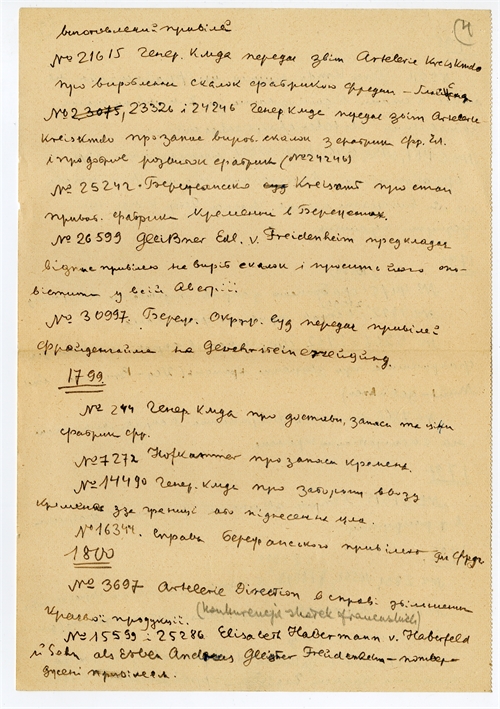 4
виготовленні привілей
№ 21615 Генер. Кмда передає звіт Artelerie Kreiskmdo
про вироблені скалок фабрикою Фрейден-
№ 23075, 23326 і 24246 Генер Кмда передає звіт Artelerie
Kreiskmdo про запас вироб. скалок з фабрики фр. Гл.
і про добрий розвиток фабрики (№24246)
№ 25242. Бережанське Kreisamt про стан
приват. фабрики Кремений в Бережанах.
№ 26599 Gleißner Edl. v. Freidenheim предкладає
відпис привілею на виріб скалок і просить його опо-
вістити у всій Австрії.
№ 30997. Береж. Окруж. Суд передає привілей
Фрайденгайма на
1799
№ 244 Генер Кмда про доставу, запаси та ціни
фабрик фр.
№7272 Hofkammer про запаси кременя.
№14490 Генер. Кмда про заборону ввозу
кременя зза границі або піднесення цла.
№16344. Справа Бережанського привілею для Фрд.
1800
№ 3697 Artelerie Direction в справі збільшення
Краєвої продукції. (konkurencja skałek francuskich)
№15599 і 25286 Elisabeth Habermann v. Haberfeld
u Sohn als Erben Andreas Gleisner Freidenheim – потвер-
дженні привілеям.